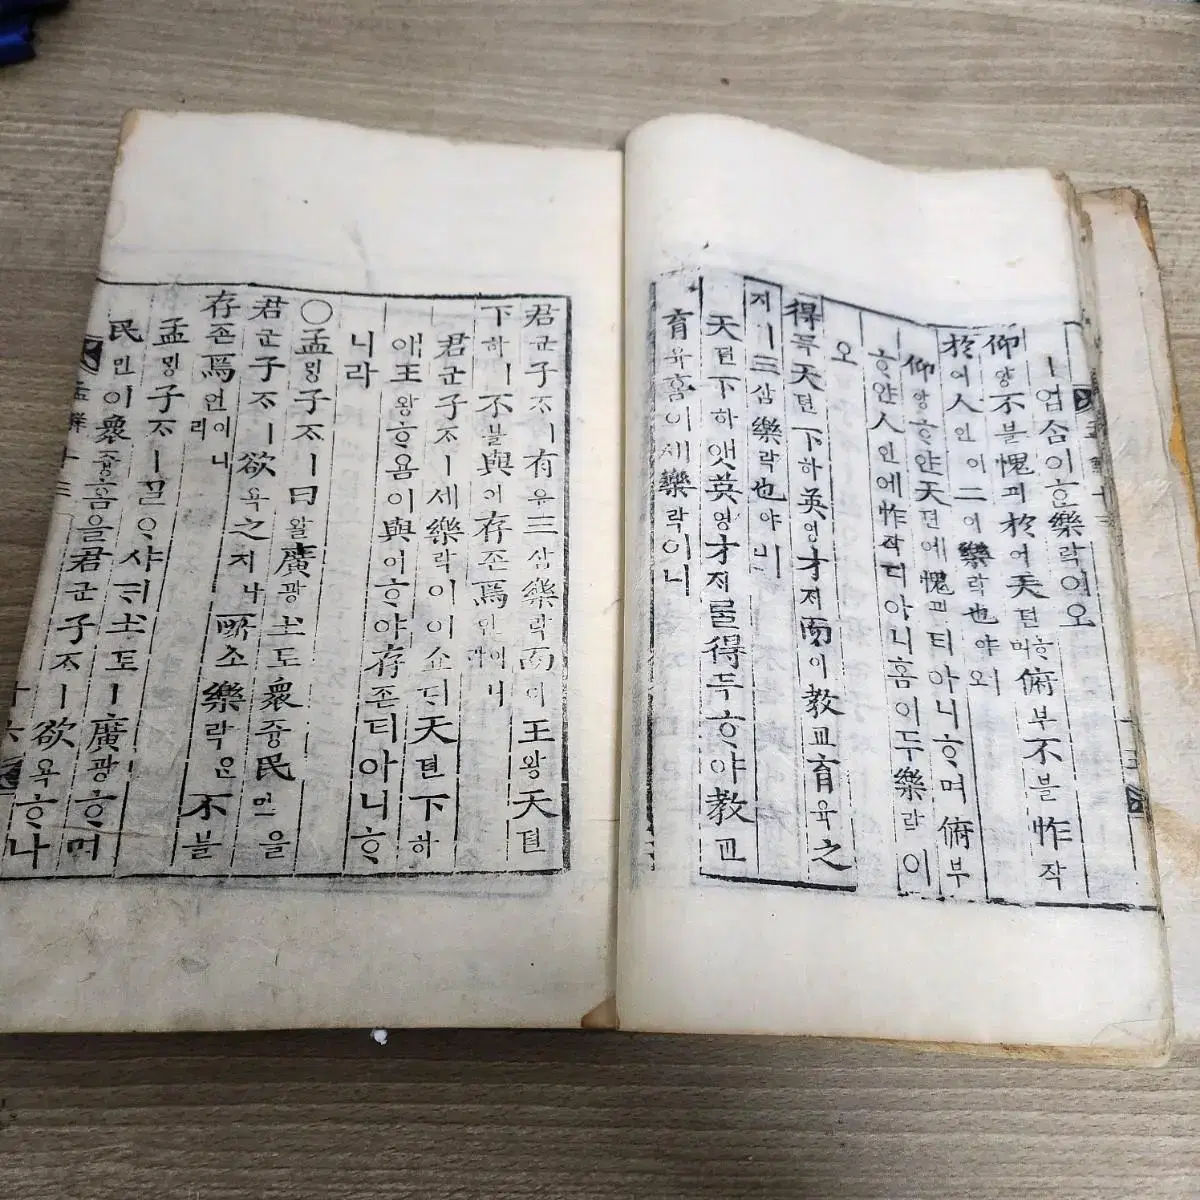 ㅣ업슴이ᄒᆞᆫ樂락이오
仰앙不블愧괴於어天텬ᄒᆞ며俯부不블怍작
於어人인이二이樂락也야ㅣ오
仰앙ᄒᆞ얀天텬에愧괴티아니ᄒᆞ며俯부
ᄒᆞ얀人인에怍작디아니홈이두樂락이
오
得득天텬下하英영才ᄌᆡ而이敎교育육之
지ㅣ三삼樂락也야ㅣ니
天텬下하앳英영才ᄌᆡ를得득ᄒᆞ야敎교
育육홈이세樂락이니
君군子ᄌᆞㅣ有유三삼樂락而이王왕天텬
下하ㅣ不블與여存존焉언이니라
君군子ᄌᆞㅣ세樂락이이쇼ᄃᆡ天텬下하
애王왕ᄒᆞ욤이與여ᄒᆞ야存존티아니ᄒᆞ
니라
○孟ᄆᆡᆼ子ᄌᆞㅣ曰왈廣광土토衆즁民민을
君군子ᄌᆞㅣ欲욕之지나所소樂락은不블
存존焉언이니라
孟ᄆᆡᆼ子ᄌᆞㅣᄀᆞᆯᄋᆞ샤ᄃᆡ土토ㅣ廣광ᄒᆞ며
民민이衆즁홈을君군子ᄌᆞㅣ欲욕ᄒᆞ나
孟解十三 十六